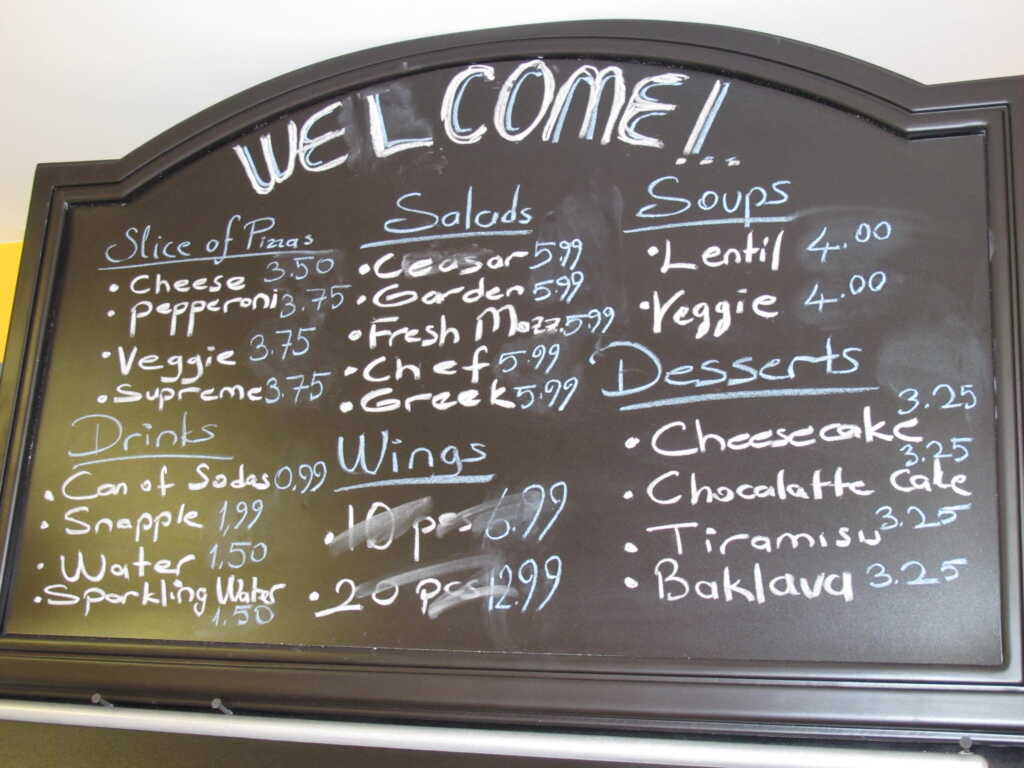 WELCOME!...
Slice of Pizzas
• Cheese 3.50
• pepperoni 3.75
• Veggie 3.75
• Supreme 3.75
Drinks
• Can of Sodas 0,99
• Snapple 1,99
• Water 1,50
• Sparkling Water
1.50
Salads
• Ceasar 5.99
• Garden 5.99
• Fresh Mozz. 5.99
• Chef 5.99
• Greek 5.99
Wings
• 10 pcs 6.99
• 20 pcs 12.99
Soups
• Lentil 4.00
• Veggie 4.00
Desserts
• Cheesecake 3.25
• Chocalatte Cake 3.25
• Tiramisu 3.25
• Baklava 3.25